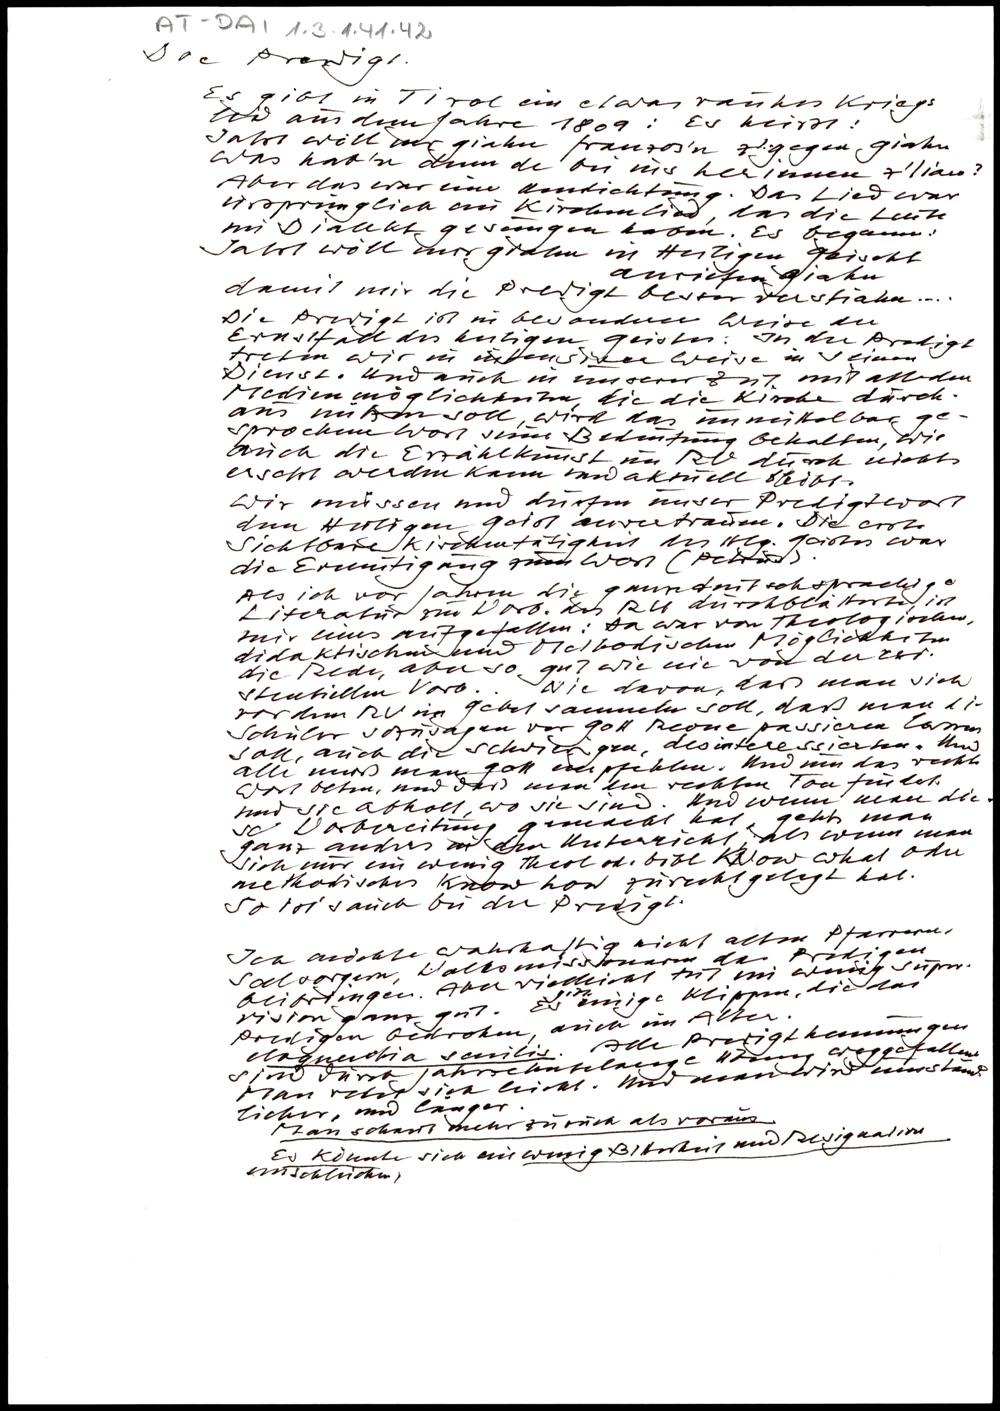 AT-DAI 1.3.1.41.42
Die Predigt.
Es gibt in Tirol ein etwas rauhes Kriegs
lied aus dem Jahre 1809: Es heisst:
Jatzt wöll mr giahn französ'n z'gegen giahn
was hab'n denn de bei uns herinnen z'tian?
Aber das war eine Umdichtung. Das Lied war
ursprünglich ein Kirchenlied, das die Leute
im Dialekt gesungen haben. Es begann:
Jatzt wöll mer giahn in Heiligen Geischt
anriefen giahn
damit mir die Predigt besser verstiahn....
Die Predigt ist in besonderer Weise der
Ernstfall des heiligen Geistes. In der Predigt
treten wir in intensiver Weise in seinen
Dienst. Und auch in unserer Zeit mit all den
Medienmöglichkeiten, die die Kirche durch-
aus nützen soll, wird das unmittelbar ge-
sprochene Wort seine Bedeutung behalten, wie
auch die Erzählkunst im RU durch nichts
ersetzt werden kann und aktuell bleibt.
Wir müssen und dürfen unser Predigtwort
dem Heiligen Geist anvertrauen. Die erste
Sichtbare Kirchentätigkeit des Hlg. Geistes war
die Ermutigung zum Wort (Petrus).
Als ich vor Jahren die ganze deutschsprachige
Literatur zur Vorb. des RU durchblätterte, ist
mir eines aufgefallen: Da war von theologischen,
didaktischen und methodischen Möglichkeiten
die Rede, aber so gut wie nie von der exi-
stentiellen Vorb.. Nie davon, daß man sich
vor dem RU im Gebet sammeln soll, daß man die
Schüler sozusagen vor Gott Revue passieren lassen
soll, auch die schwierigen, desinteressierten. Und
alle muß man Gott empfehlen. Und um das rechte
Wort beten, und daß man den rechten Ton findet
und sie abholt, wo sie sind. Und wenn man die-
se Vorbereitung gemacht hat, geht man
ganz anders in den Unterricht, als wenn man
sich nur ein wenig theol od. bibl Know what oder
methodisches Know how zurechtgelegt hat.
So ist's auch bei der Predigt.
Ich möchte wahrhaftig nicht alten Pfarrern,
Seelsorgern, Volksmissionaren das Predigen
beibringen. Aber vielleicht tut ein wenig Super-
vision ganz gut. Es gibt einige Klippen, die das
Predigen bedrohen, auch im Alter.
eloquentia senilis. Alle Predigthemmungen
sind durch jahrzehntelange Übung weggefallen
Man redet sich leicht. Und man wird umständ-
licher, und länger.
Man schaut mehr zurück als voraus
Es könnte sich ein wenig Bitterkeit und Resignation
einschleichen,